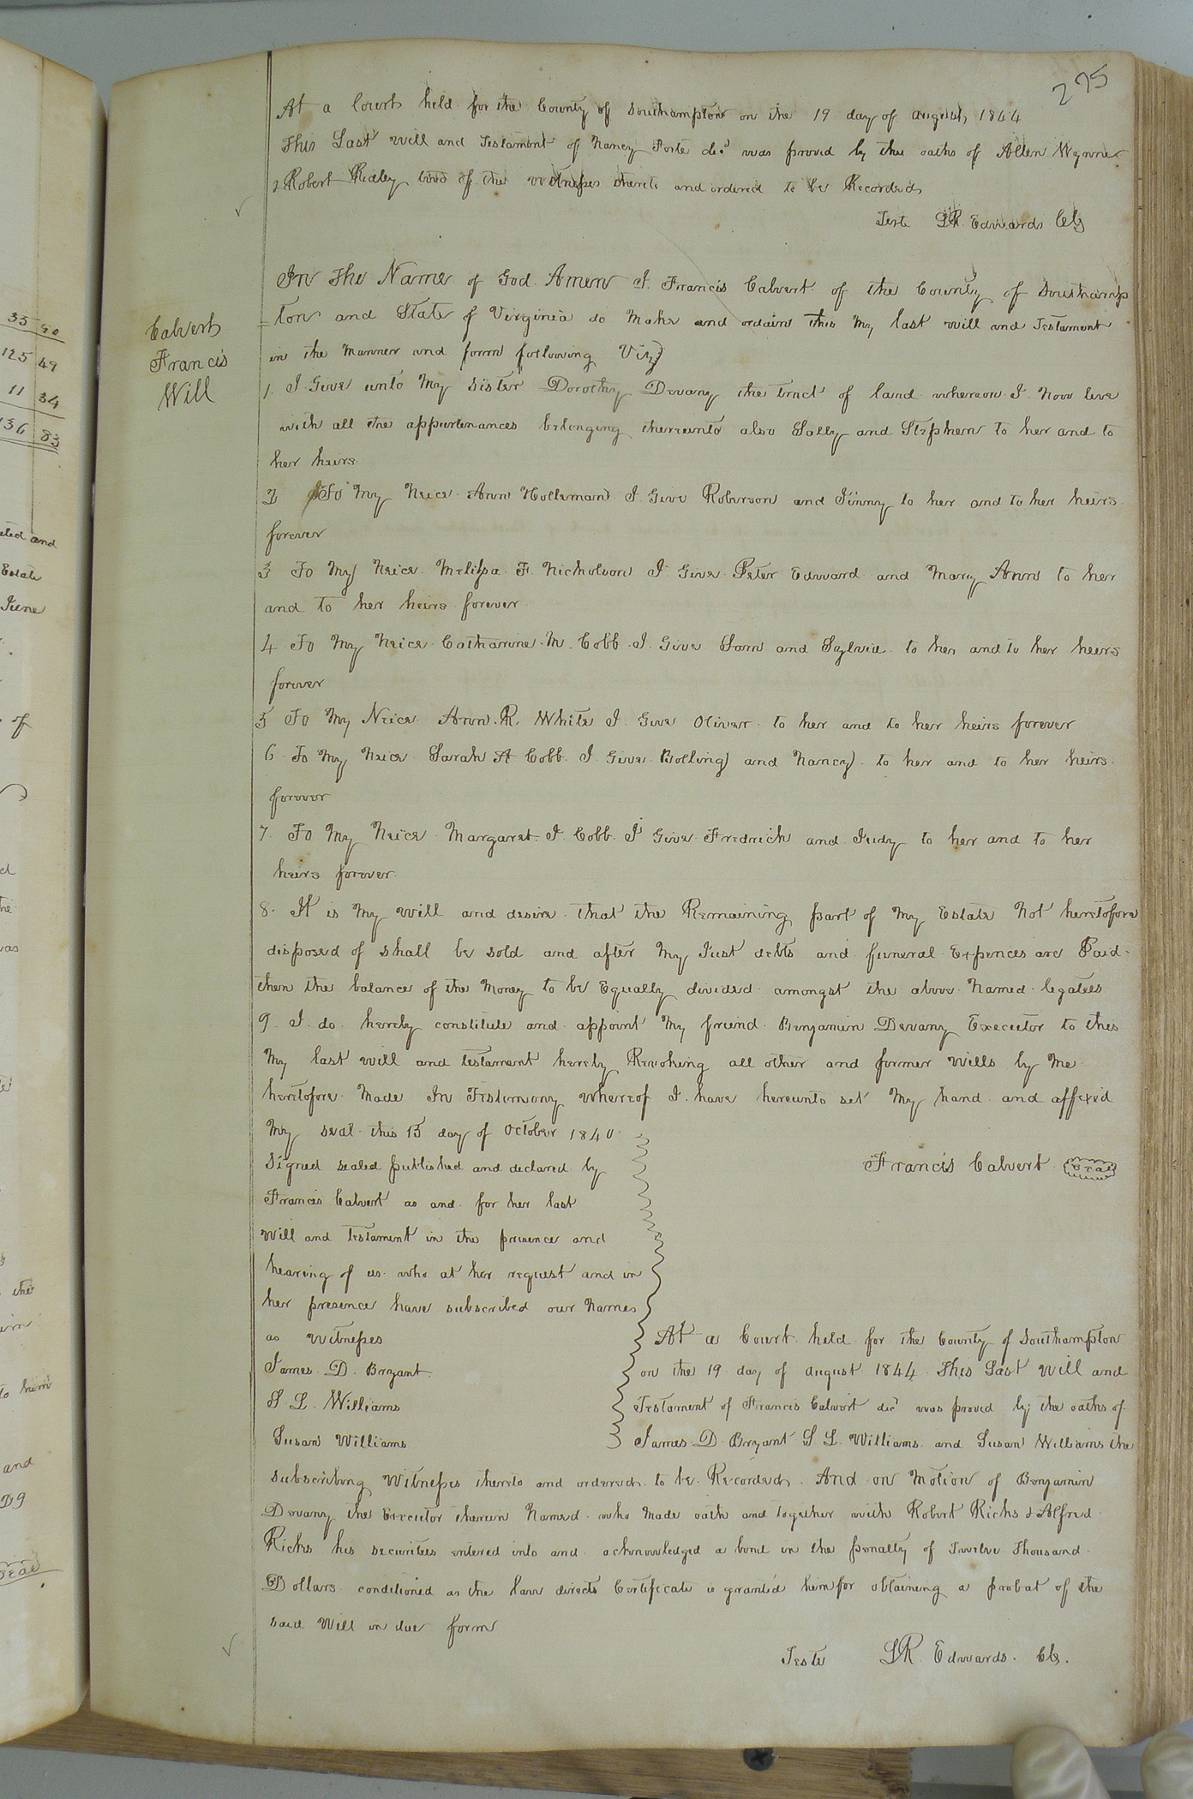 275
At a Court held for the County of Southampton on the 19 day of August, 1844
This Last Will and Testament of Nancy Porte decd was proved by the oaths of Allen Wynne
& Robert Ridley two of the witnesses thereto and ordered to be Recorded
Teste LR Edwards Clk
Calvert
Francis
Will
In The Name of God Amen I Francis Calvert of the County of Southamp
=ton and State of Virginia do Make and ordain this My last will and Testament
in the Manner and form following Viz)
1. I Give unto My Sister Dorothy Devany the tract of land whereon I Now live
with all the appurtenances belonging thereunto also Sally and Stephen to her and to
her heirs
2 To My Neice Ann Holleman I Give Roberson and Jinny to her and to her heirs
forever
3 To My Neice Melissa F. Nicholson I Give Peter Edward and Mary Ann to her
and to her heirs forever
4 To My Neice Catharine M. Cobb I Give Sam and Sylvia to her and to her heirs
forever
5 To My Neice Ann. R. White I Give Oliver to her and to her heirs forever
6 To My Neice Sarah A Cobb I Give Bolling and Nancy to her and to her heirs
forever
7. To My Neice Margaret I. Cobb I Give Fredrick and Judy to her and to her
heirs forever
8. It is My will and desire that the Remaining part of My Estate Not heretofore
disposed of shall be sold and after My Just debts and funeral Expences are Paid
then the balance of the Money to be Equally divided amongst the above Named legatees
9. I do hereby constitute and appoint My friend Benjamin Devany Executor to this
My last will and testament hereby Revoking all other and former Wills by Me
heretofore Made In Testimony whereof I have hereunto set My hand and affixed
My seal this 15 day of October 1840
Signed sealed published and declared by
Francis Calvert as and for her last
Will and testament in the presence and
hearing of us who at her request and in
her presence have subscribed our Names
as Witnesses
James D. Bryant
S L Williams
Susan Williams
Francis Calvert Seal
At a Court held for the County of Southampton
on the 19 day of August 1844 This Last Will and
Testament of Francis Calvert decd was proved by the oaths of
James D. Bryant S L Williams and Susan Williams the
subscribing Witnesses thereto and ordered to be Recorded. And on Motion of Benjamin
Devany the Executor therein Named who Made oath and together with Robert Ricks & Alfred
Ricks his securities entered into and acknowledged a bond in the penalty of Twelve Thousand
Dollars conditioned as the law directs Certificate is granted him for obtaining a probat of the
said Will in due form
Teste LR Edwards. Clk.
35 40
125 49
11 34
136 83
and
Estate
of
the
to him
and